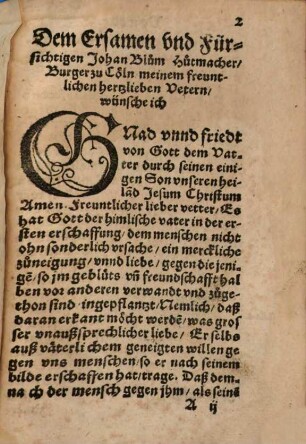 2
Dem Ersamen vnd Für⸗
sichtigen Johan Blům Hůtmacher/
Burger zu Cöln meinem freunt⸗
lichen hertzlieben Vetern/
wünsche ich
GNad vnnd friedt
von Gott dem Vat⸗
ter durch seinen eini⸗
gen Son vnseren hei⸗
lād Jesum Christum
Amen. Freuntlicher lieber vetter/ Es
hat Gott der himlische vater in der er⸗
sten erschaffung/ dem menschen nicht
ohn sonderlich vrsache/ ein merckliche
zůneigung/ vnnd liebe/ gegen die jeni⸗
gē/ so jm geblůts vn̄ freundschafft hal
ben vor anderen verwandt vnd zůge⸗
thon sind ingepflantzt/ Nemlich/ daß
daran erkant möcht werdē/ was gros
ser vnaußsprechlicher liebe/ Er selbs
auß våterlichem geneigten willen ge
gen vns menschen/ so er nach seinem
bilde erschaffen hat/ trage. Daß dem⸗
na ch der mensch gegen jhm/ als seinē
A ij